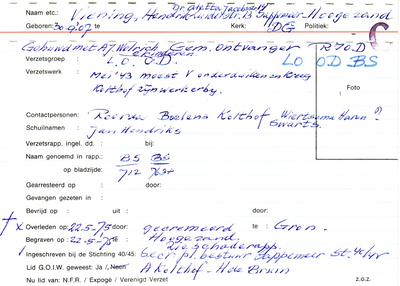 Dr. Aletta Jacobsstr
Naam etc.: Viening, Hendrik Sappemeer-Hoogezand
Geboren: 30.9.07 te Kerk: DG Politiek:
Gehuwd met A.J. Gem. ontvanger R70D
Verzetsgroep: L.O. O.D. LO OD BS
Verzetswerk: Mei '43 meest v onderduikers en kreeg
Kolthof zijn werk erbij. Foto
Contactpersonen: Reersa Boelens Kolthof Wiertsema Haren ?
Schuilnamen: Jan Hendriks Swarts.
Verzetsrapp. ingel. dd. : bij:
Naam genoemd in rapp.: BS BS
op bladzijde: 712
Gearresteerd op : door:
Gevangen gezeten in :
Bevrijd op : uit : door:
x Overleden op: 22-5-'75 door: te Gron.
Begraven op : 22-5-'75 te: Hoogezand.
Zie schaderapp.
Ingeschreven bij de Stichting 40/45: Secr pl. bestuur Sappemeer St. 40/45
Lid G.O.I.W. geweest: Ja / Neen A Kolthof - H de Bruin
Nu lid van: N.F.R. / Expogé / Verenigd Verzet z.o.z.